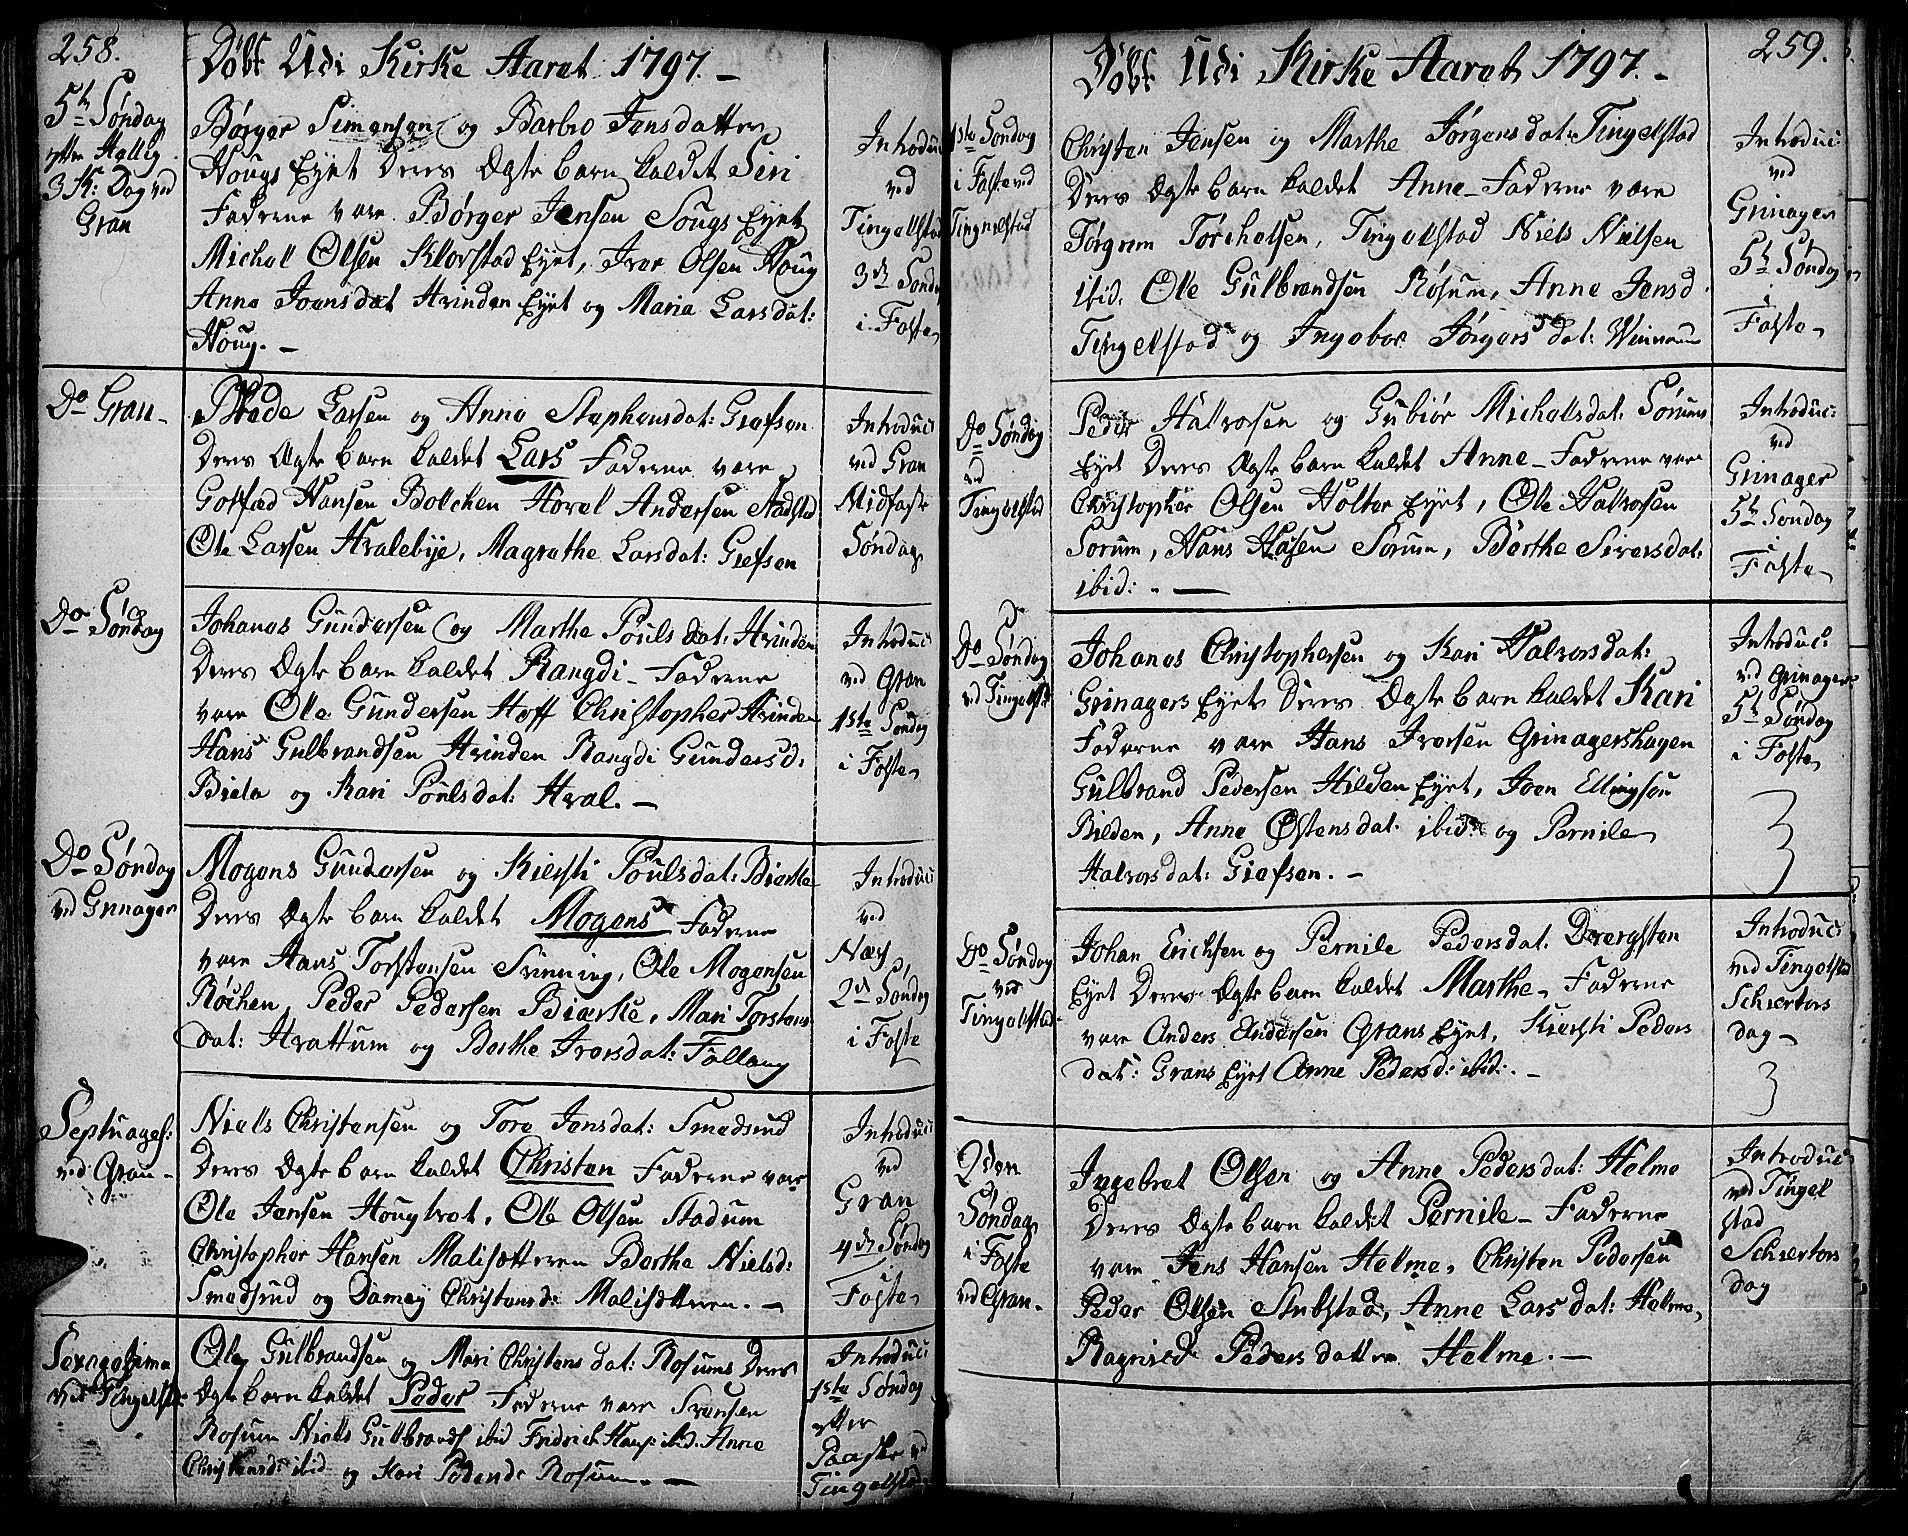 258.
Döbt Udi Kirke Aaret 1797.-
5te Söndag
efter Hellig
3 K: Dag ved
Gran
Börger Simensen og Barbro Jensdatter
Hougs Eyet Deres Ægte barn kaldet Siri
Faderne vare Börger Jensen Hougs Eyet
Michel Olsen Klovstad Eyet, Iver Olsen Houg
Anne Joensdat Hvinden Eyet og Maria Larsdat:
Houg.-
Introduc:
ved
Tingelstad
3de Söndag
i Faste
Do Gran-
Larsen og Anne Stephensdat: Giefsen
Deres Ægte barn kaldet Lars Faderne vare
Hansen Bolchen Hovel Andersen
Ole Larsen Hvalebye, Magrethe Larsdat: Giefsen
Introduc:
ved Gran
Midfaste
Söndag
Do Söndag
Johanes Gundersen og Marthe Pouls dat: Hvinden
Deres Ægte barn kaldet Rangdi- Faderne
vare Ole Gundersen Hoff Christopher Hvinden
Hans Gulbrandsen Hvinden Rangdi Gundersd:
Biela og Kari Poulsdat: Hval.-
Introduc:
ved Gran
1ste Söndag
i Faste
Do Söndag
ved Grinager
Mogens Gundersen og Kiersti Poulsdat: Bierke
Deres Ægte barn kaldet Mogens Faderne
vare Hans Torstensen Svinning, Ole Mogensen
Röchen, Peder Pedersen Bierke, Mari Torstens
dat: Hvattum og Berthe Iversdat: Fallang
Introduc:
ved
Næs
2den Söndag
i Faste
Septuages:
ved Gran-
Niels Christensen og Tore Jensdat: Smedsrud
Deres Ægte barn kaldet Christen Faderne vare
Ole Jensen Hougtvet, Ole Olsen Stadum
Christopher Hansen Malisetteren Berthe Nielsd:
Smedsrud og Damey Christensd: Malisetteren.-
Introduc:
ved
Gran
4de Söndag
i
Faste
Sexagesima
ved Tingelstad
Ole Gulbrandsen og Mari Christens dat: Rosums Deres
Ægte barn kaldet Peder Faderne vare Svensen
Rosum Niells Gulbrands ibid Fridrich Hans: ibid. Anne
Christensd: ibid og Kari Pedersd: Rosum.-
Introduc:
1ste Söndag
efter
Paaske ved
Tingelstad
259.
Döbt Udi Kirke Aaret 1797.-
1ste Söndag
i Faste ved
Tingelstad
Christen Jensen og Marthe Jörgens dat: Tingelstad
Deres Ægte barn kaldet Anne- Faderne vare
Törgrem Torcholsen, Tingelstad Niels Nielsen
ibid. Ole Gulbrandsen Rosum, Anne Jensd
Tingelstad og Ingebor Jörgensdat:
Introduc:
ved
Grinager
5te Söndag
i
Faste
Do Söndag
ved
Tingelstad
Peder Halvorsen og Gubiör Michelsdat: Sörums
Eyet Deres Ægte barn kaldet Anne- Faderne vare
Christopher Olsen Holter Eyet, Ole Halvorsen
Sorum, Hans Sorum, Berthe Siversdat:
ibid:.-
Introduc:
ved
Grinager
5te Söndag
i
Faste
Do Söndag
ved Tingelst
Johanes Christophersen og Kari Halvorsdat:
Grinagers Eyet Deres Ægte barn kaldet Kari
Faderne vare Hans Iversen Grinagershagen
Gulbrand Pedersen Hilden Eyet, Joen Ellingsen
Bilden, Anne Östensdat. ibid: og Pernile
Halvorsdat: Giefsen.-
Introduc:
ved Grinager
5te Söndag
i Faste
3
Do Söndag
ved
Tingelstad
Johan Erichsen og Pernile Pedersdat. Dvergsten
Eyet Deres Ægte barn kaldet Marthe- Faderne
vare Anders Andersen Grans Eyet, Kiersti Peders
dat: Grans Eyet Anne Pedersd: ibid:.-
Introduc:
ved Tingelstad
Schiertors
dag-
3
2den
Söndag
i Faste
ved Gran-
Ingebret Olsen og Anne Pedersdat: Helme
Deres Ægte barn kaldet Pernile- Faderne
vare Jens Hansen Helme, Christen Pedersen
Peder Olsen Stubstad, Anne Lars dat: Helme,
Ragnild Peders datter Helme.-
Introduc:
ved Tingel
stad
Schiertors
dag